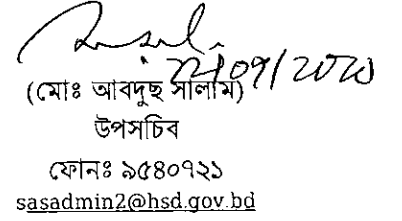 22/09/2020
(মোঃ আবদুছ সালাম)
উপসচিব
ফোনঃ ৯৫৪০৭২১
sasadmin2@hsd.gov.bd